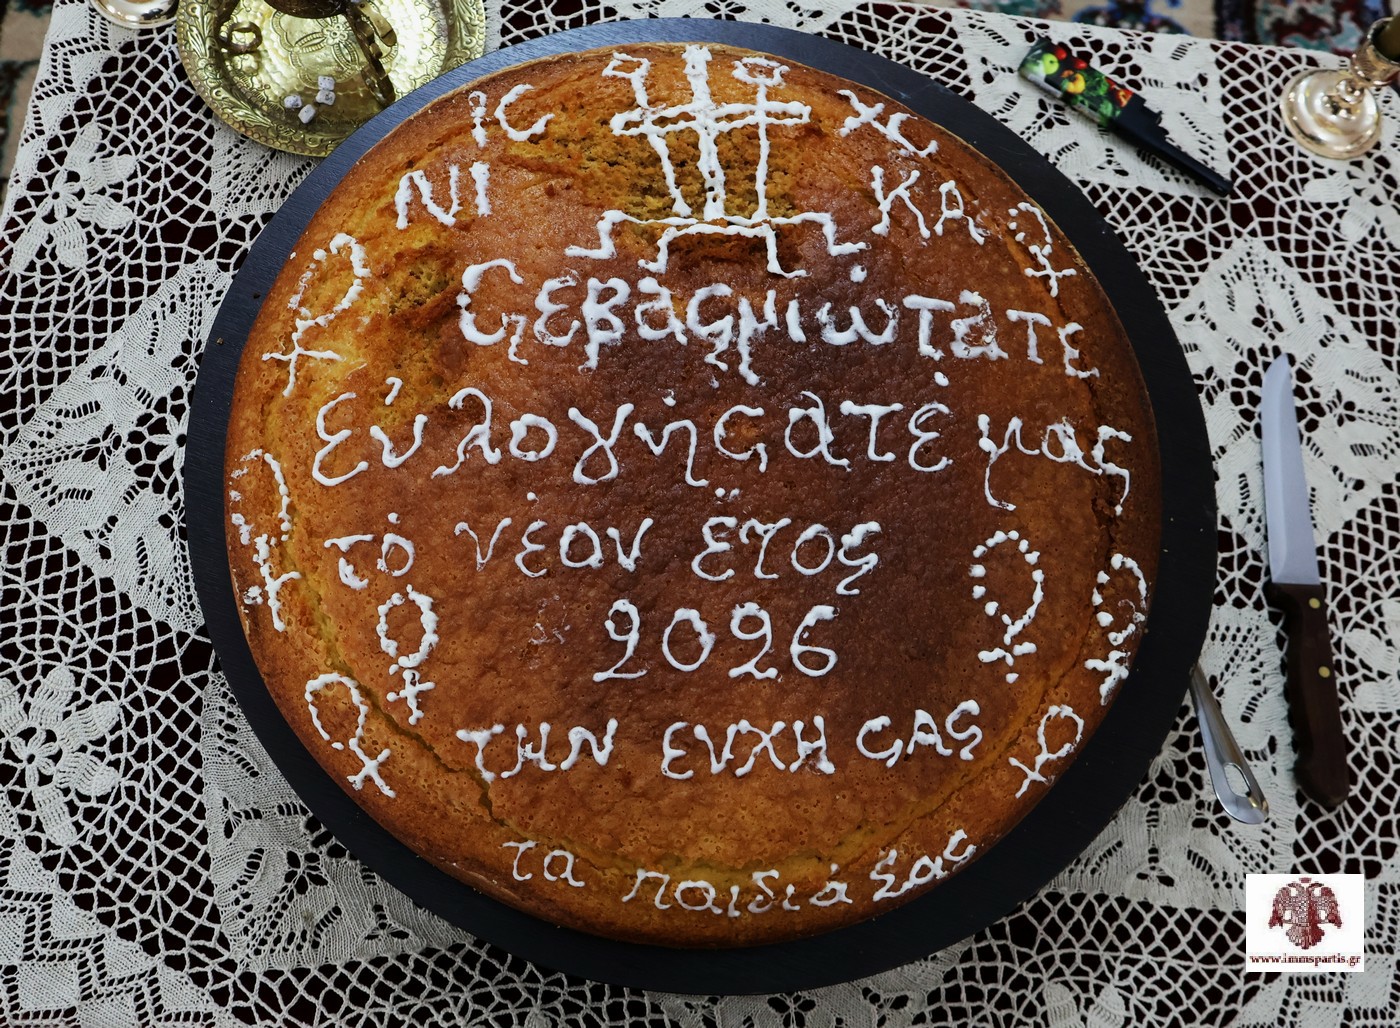 ΙC ΧC
ΝΙ ΚΑ
Σεβασμιώτατε
Εὐλογήσατέ μας
τὸ νέον ἔτος
2026
ΤΗΝ ΕΥΧΗ ΣΑΣ
τα παιδιά σας
www.immspartis.gr